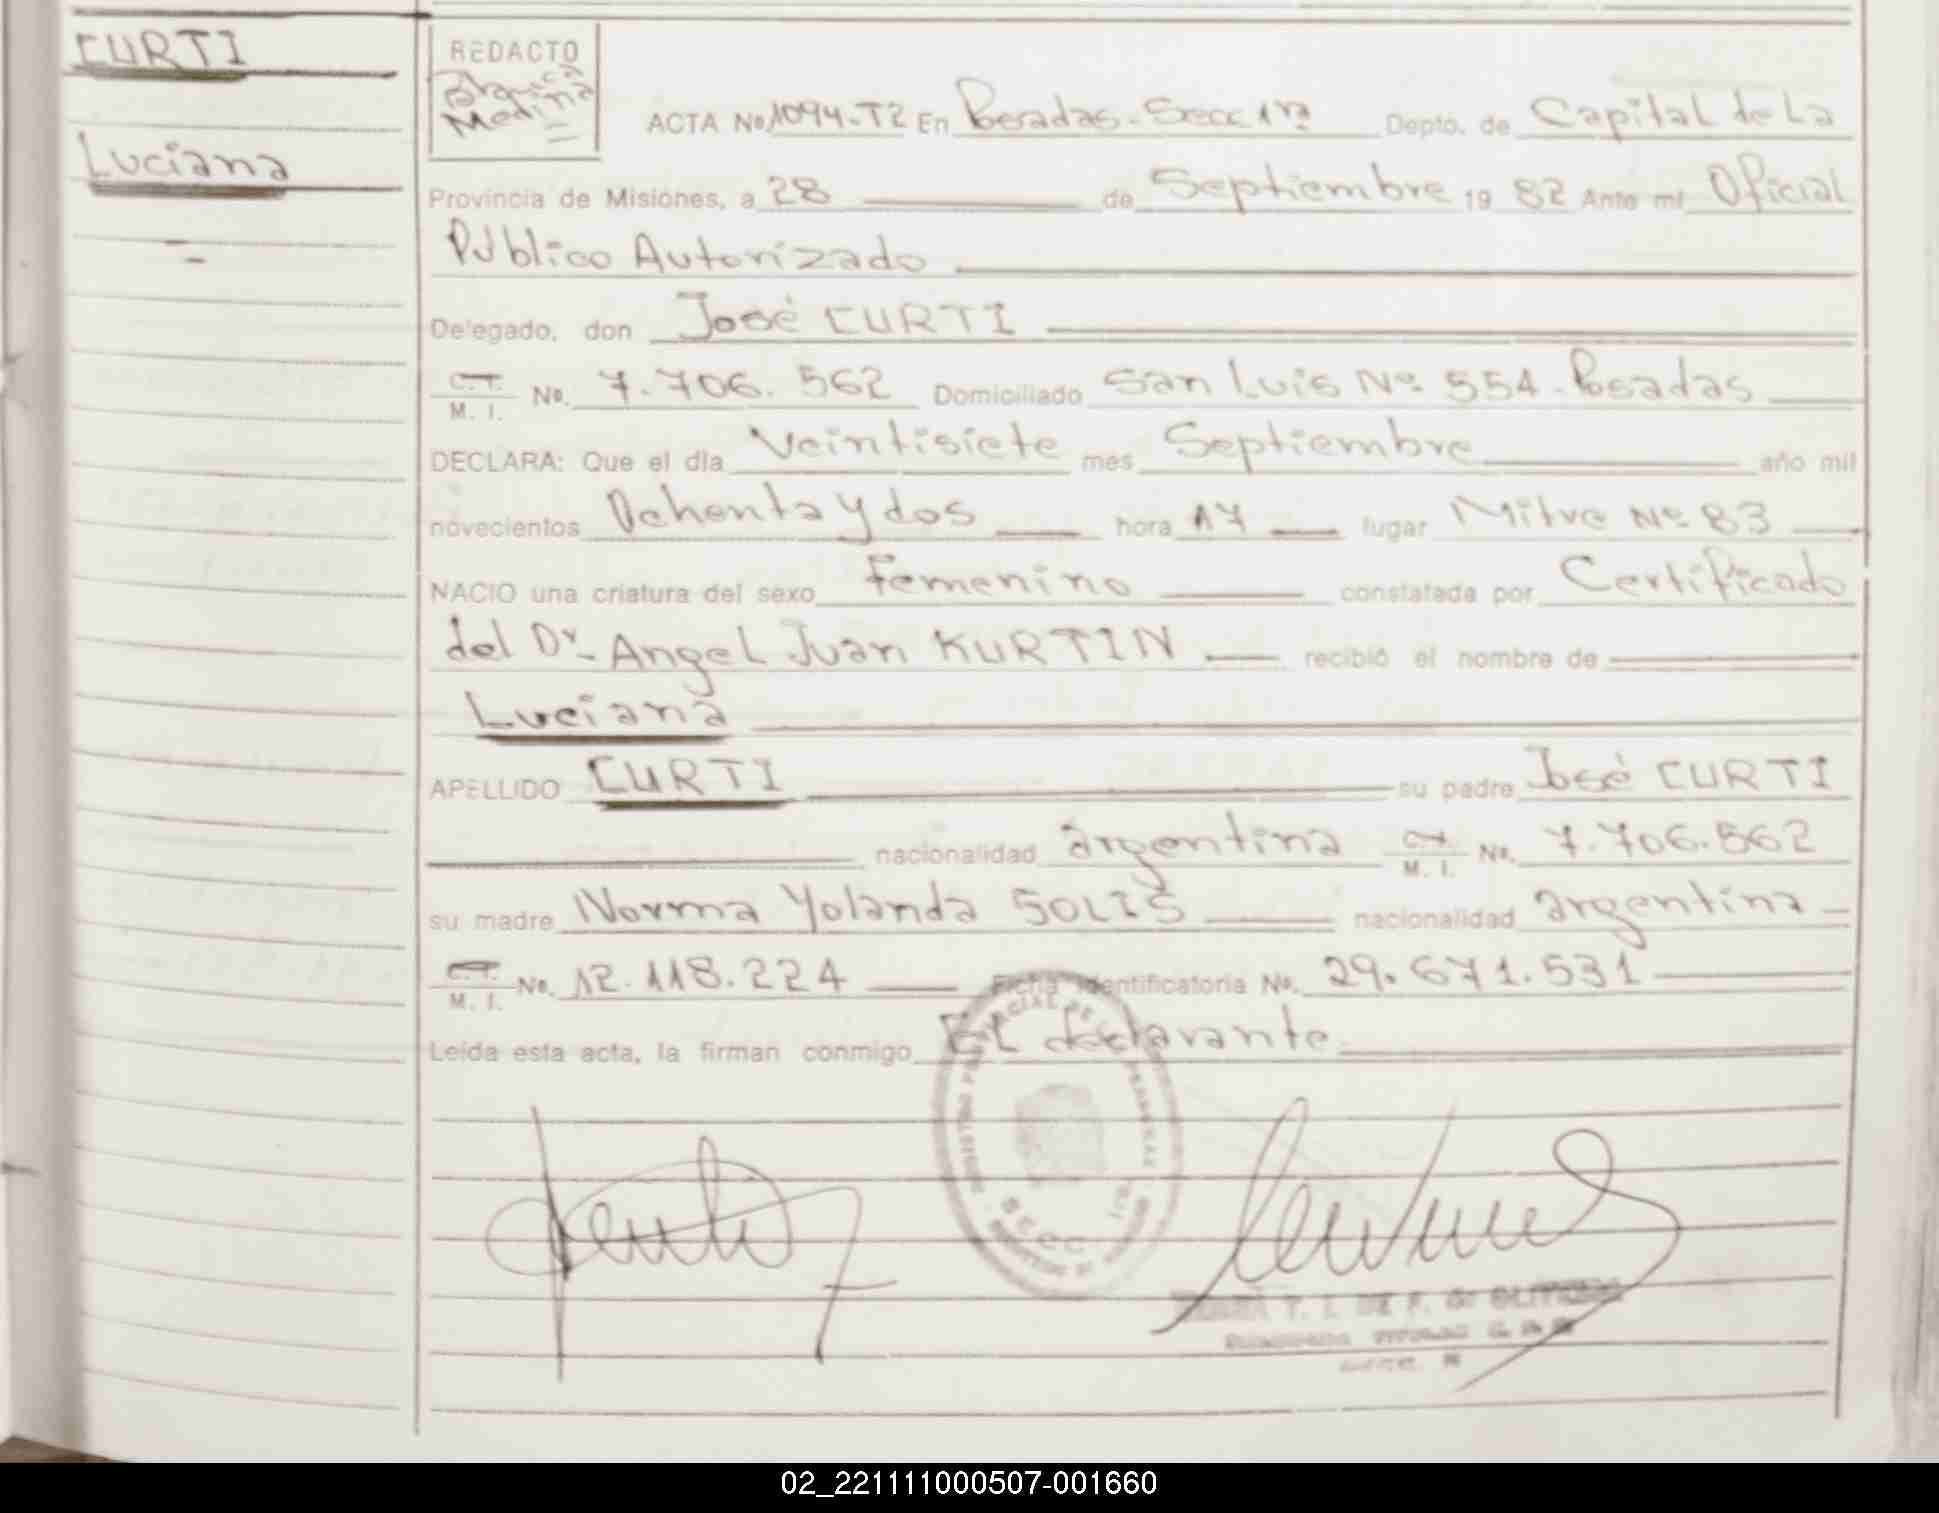 CURTI
Luciana
REDACTO
Medina
ACTA No 1094-T2 En Posadas-Secc 1ra Depto. de Capital de La
Provincia de Misiones, a 28 de Septiembre 19 82 Ante mi Oficial
Público Autorizado
Delegado, don José CURTI
C.I. M. I. No. 7.706.562 Domiciliado San Luis No 554-Posadas
DECLARA: Que el dia Veintisiete mes Septiembre año mil
novecientos Ochenta y dos hora 17 lugar Mitre No 83
NACIO una criatura del sexo Femenino constatada por Certificado
del Dr- Angel Juan KURTIN recibió el nombre de
Luciana
APELLIDO CURTI su padre José CURTI
nacionalidad argentina C.I. M. I. No. 7.706.562
su madre Norma Yolanda SOLIS nacionalidad argentina
C.I. M. I. No. 12.118.224 Ficha Identificatoria No. 29.671.531
Leída esta acta, la firman conmigo El declarante
SECC 1ra.
02_221111000507-001660